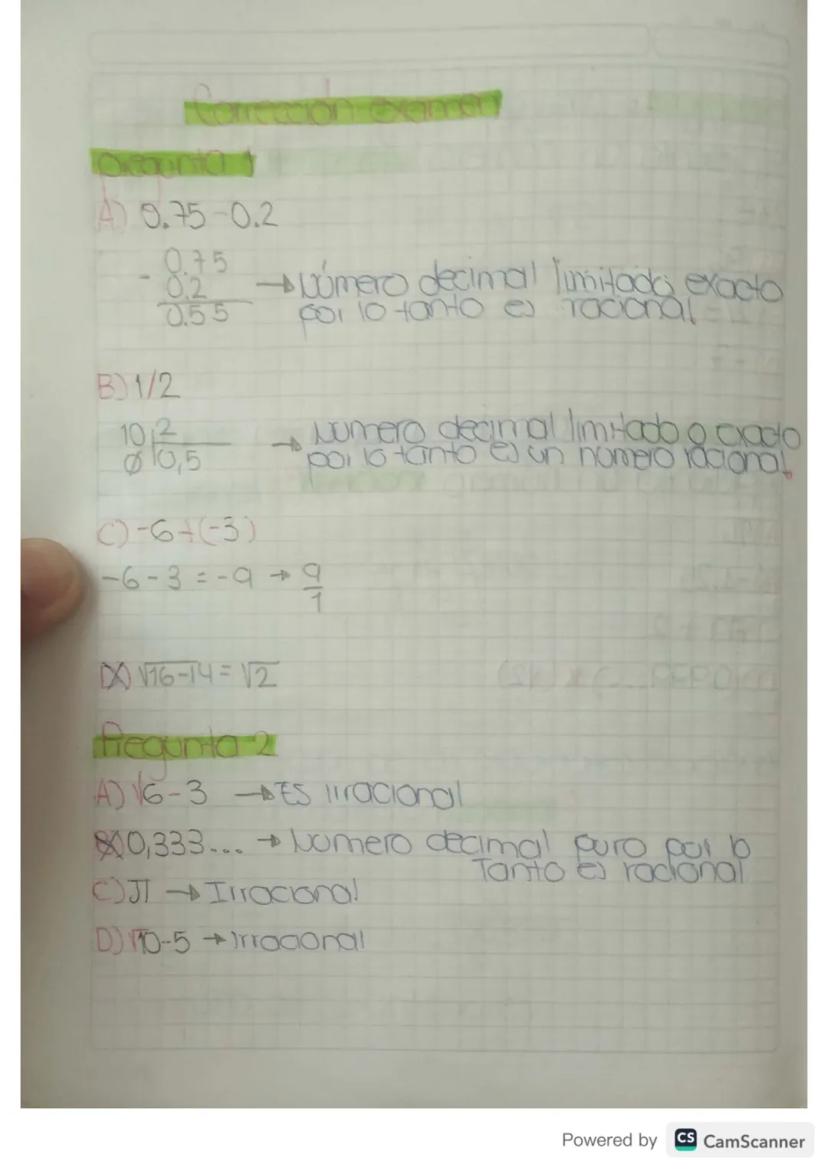 Corrección examen
Pregunta 1
A) 0.75-0.2
- 0.75
0.2
0.55
→ Número decimal limitado, exacto
por lo tanto es racional
B) 1/2
10 2
0 0,5
→ Numero decimal limitado o exacto
por lo tanto es un numero racional.
C) -6+(-3)
-6-3 = -9 → 9/1
D) √16-14 = √2
Pregunta 2
A) √6-3 → Es irracional
B) 0,333... → Numero decimal puro por lo
Tanto es racional
C) π → Irracional
D) √10-5 → Irracional
Powered by CS CamScanner